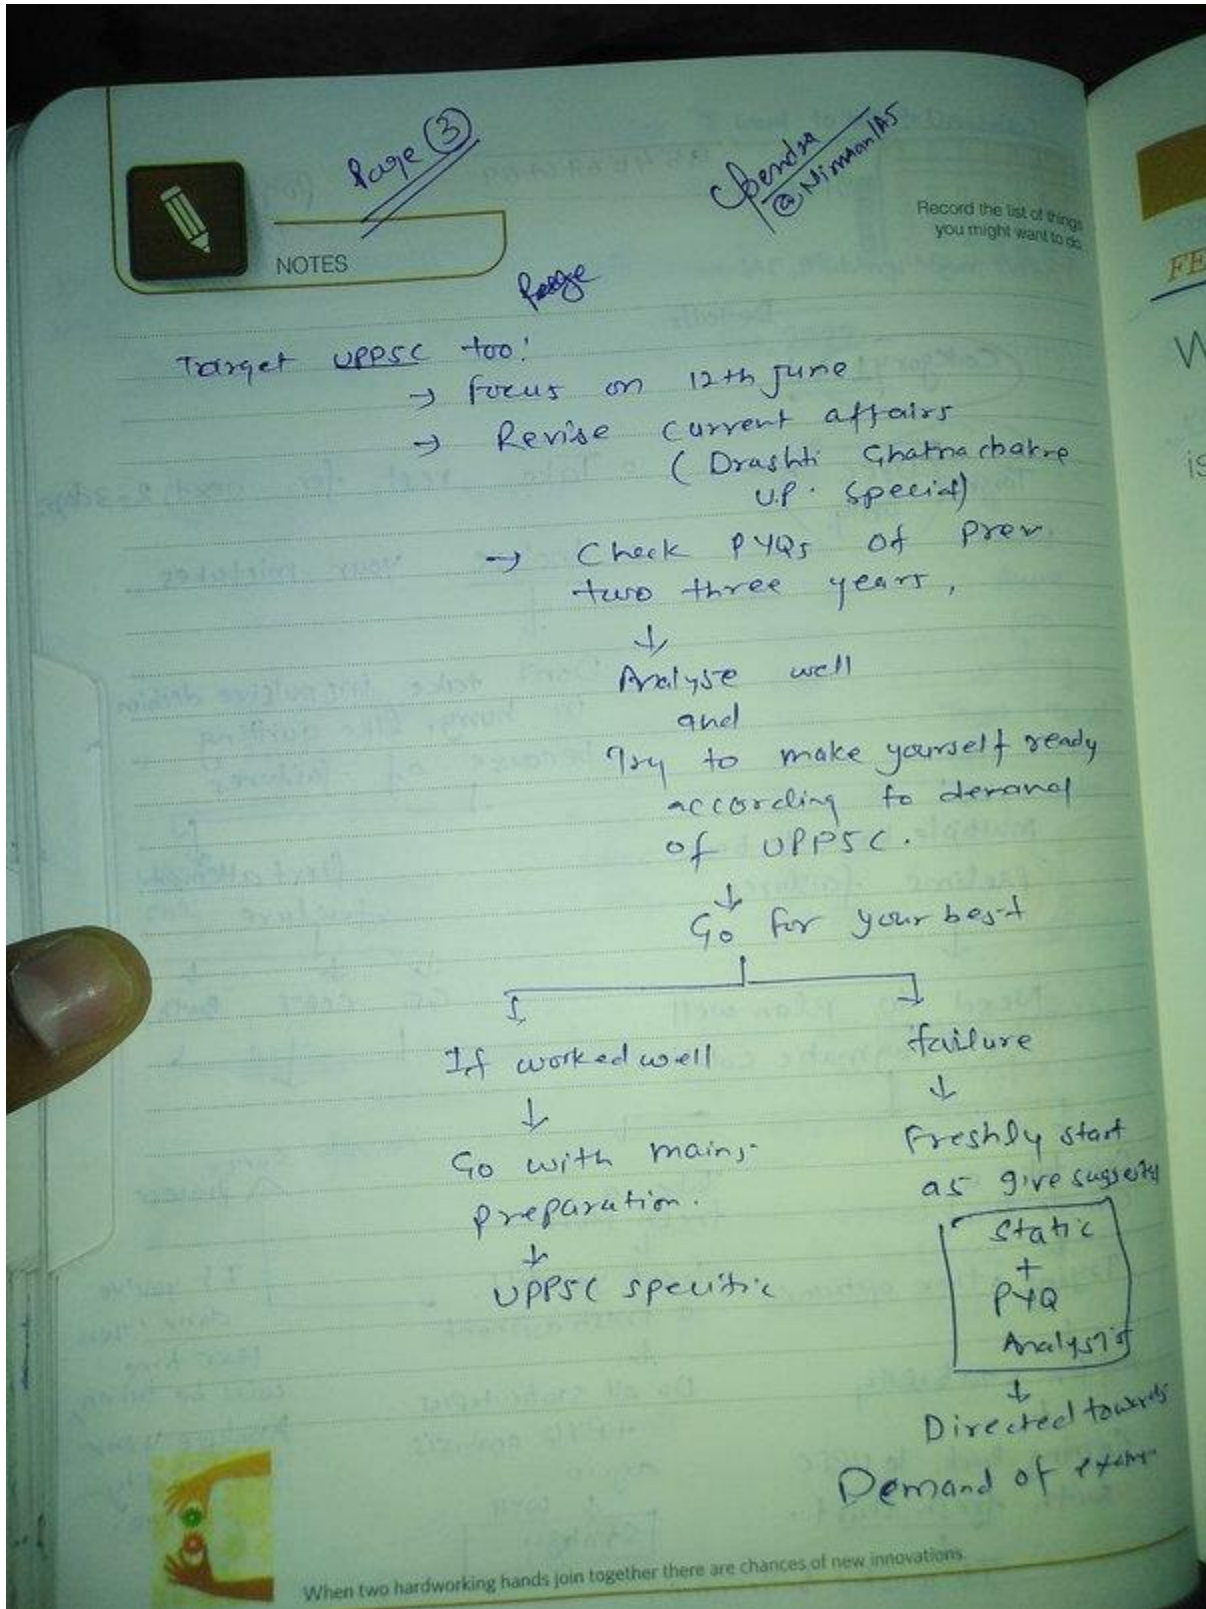 Page 3
Upendra
@NirmanIAS
Record the list of things
you might want to do
NOTES
Target UPPSC too!
→ Focus on 12th June
→ Revise current affairs
(Drashti Ghatnachakre
U.P. Special)
→ Check PYQs of prev.
two three years,
↓
Analyse well
and
Try to make yourself ready
according to demand
of UPPSC.
↓
Go for your best
If worked well
failure
↓
↓
Go with mains
preparation.
Freshly start
as give
↓
UPPSC specific
Static
+
PYQ
Analysis
↓
Directed towards
Demand of exam
When two hardworking hands join together there are chances of new innovations.
FE
W
is